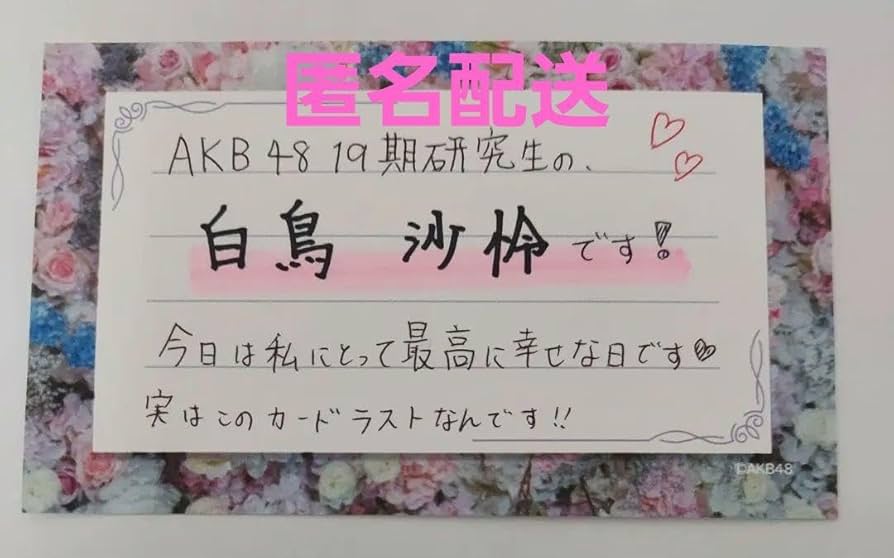 匿名配送
AKB48 19期研究生の、
白鳥 沙怜です!
今日は私にとって最高に幸せな日です♡
実はこのカードラストなんです!!
©AKB48